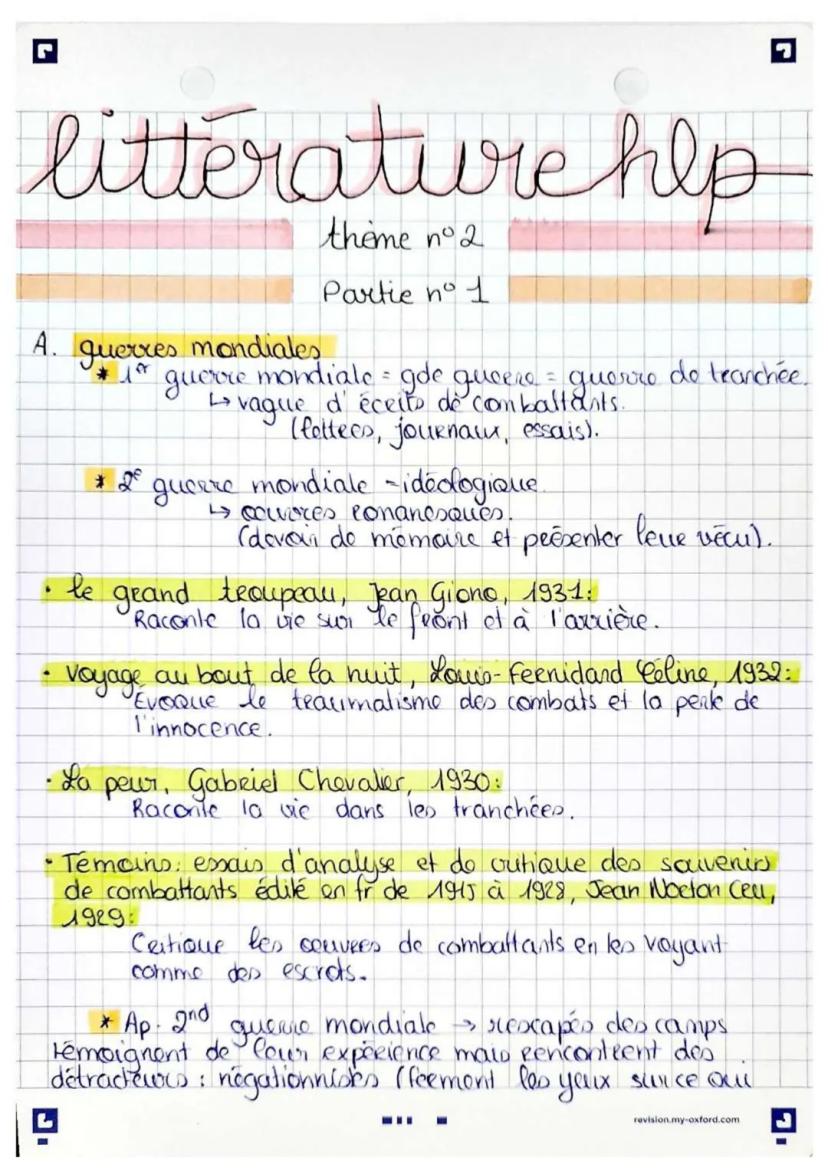 littérature hlp
thème n° 2
Partie n° 1
A. guerres mondiales
* 1er guerre mondiale = gde guerre = guerre de tranchée.
↳ vague d'écrits de combattants.
(lettres, journaux, essais).
* 2e guerre mondiale - idéologique.
↳ oeuvres romanesques.
(devoir de mémoire et présenter leur vécu).
• le grand troupeau, Jean Giono, 1931:
Raconte la vie sur le front et à l'arrière.
• Voyage au bout de la nuit, Louis-Fernidand Céline, 1932:
Evoque le traumatisme des combats et la perte de
l'innocence.
• La peur, Gabriel Chevalier, 1930:
Raconte la vie dans les tranchées.
• Témoins: essais d'analyse et de critique des souvenirs
de combattants édité en fr de 1915 à 1928, Jean Norton Cru,
1929:
Critique les oeuvres de combattants en les voyant
comme des escrots.
* Ap. 2nd guerre mondiale → rescapés des camps
témoignent de leur expérience mais rencontrent des
détracteurs : négationnistes (ferment les yeux sur ce qui
revision.my-oxford.com